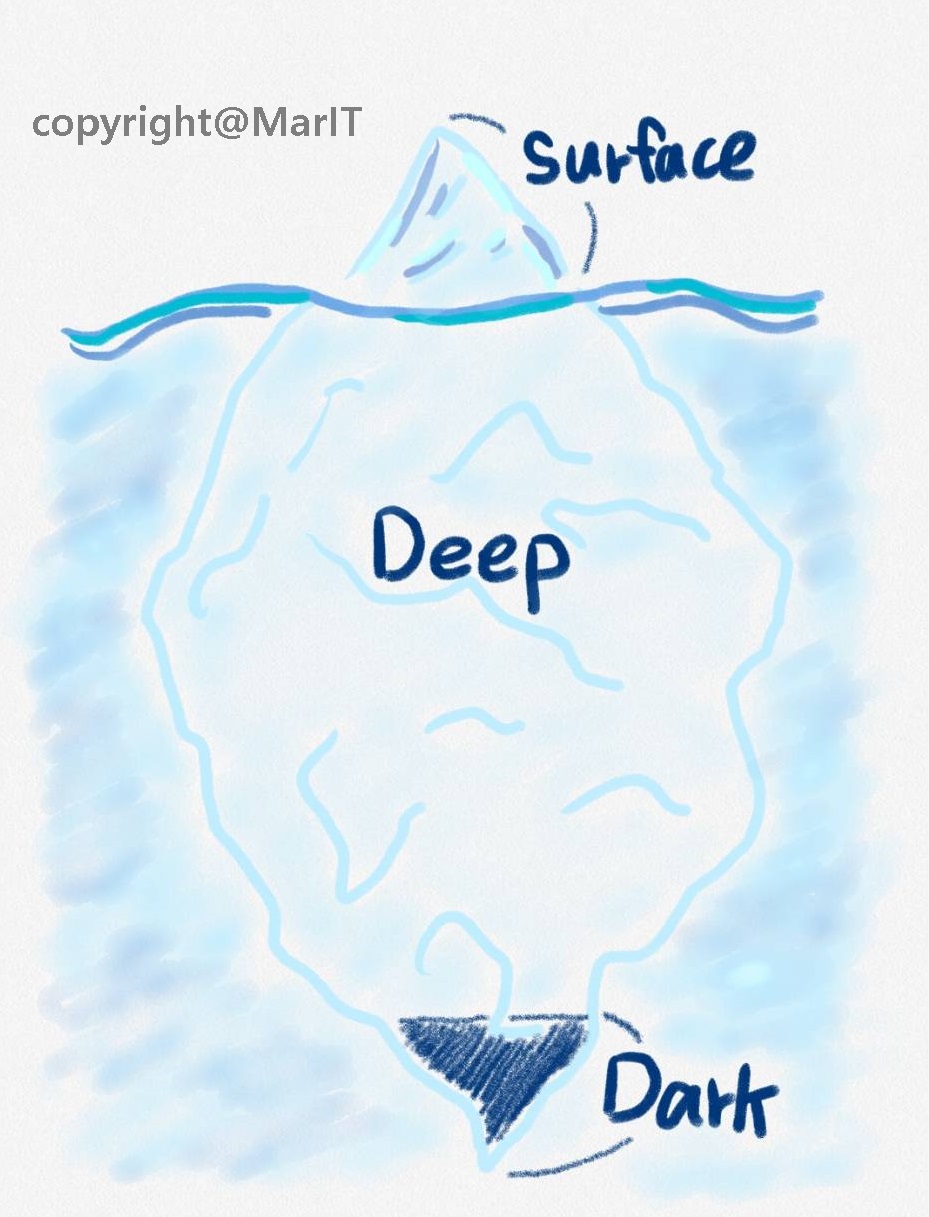 copyright@MarIT
Surface
Deep
Dark